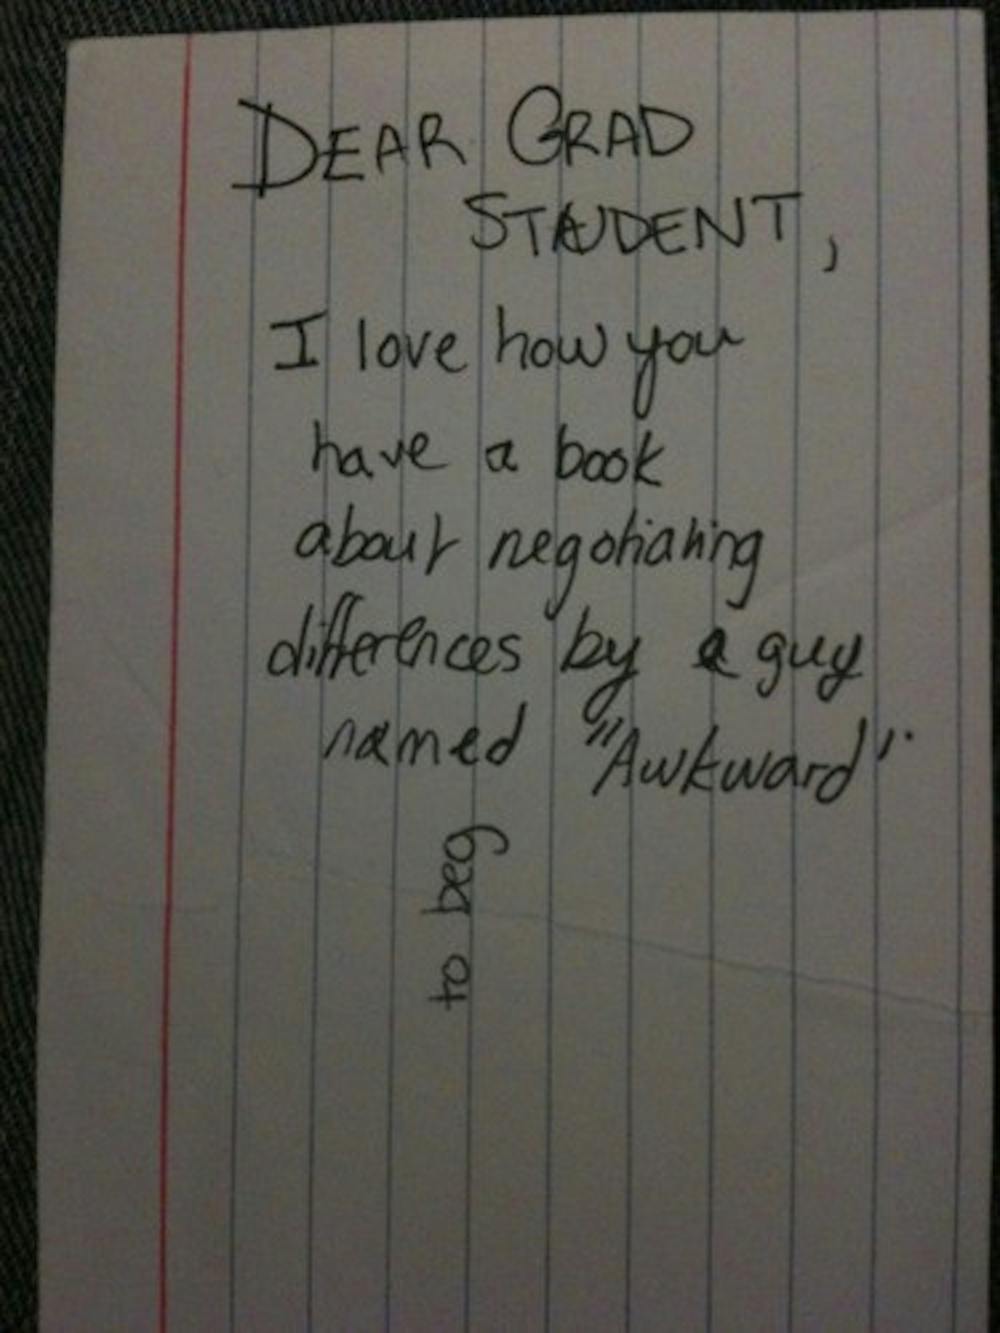 DEAR GRAD
STUDENT,
I love how you
have a book
about negotiating
differences by a guy
named "Awkward".
to beg